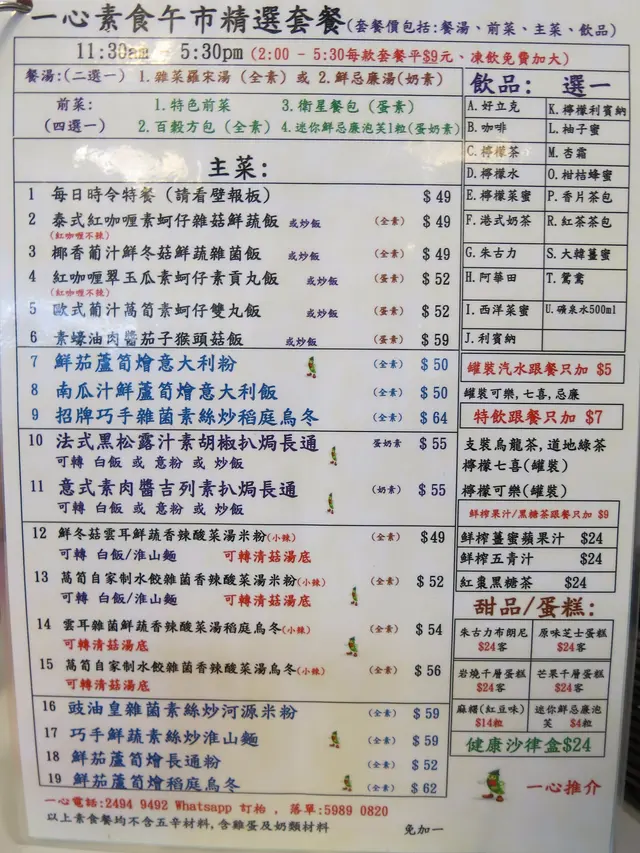 一心素食午市精選套餐(套餐價包括:餐湯、前菜、主菜、飲品)
11:30am - 5:30pm (2:00 - 5:30每款套餐平$9元、凍飲免費加大)
餐湯:(二選一) 1.雜菜羅宋湯 (全素) 或 2.鮮忌廉湯(奶素)
前菜: 1.特色前菜 3.衛星餐包 (蛋素)
(四選一) 2.百穀方包 (全素) 4.迷你鮮忌廉泡芙1粒(蛋奶素)
主菜:
1 每日時令特餐 (請看壁報板) $49
2 泰式紅咖喱素蚵仔雜菇鮮蔬飯 或炒飯 (全素) $49
(紅咖喱不辣)
3 椰香葡汁鮮冬菇鮮蔬雜菌飯 或炒飯 (全素) $49
4 紅咖喱翠玉瓜素蚵仔素貢丸飯 或炒飯 (蛋素) $52
(紅咖喱不辣)
5 歐式葡汁萵筍素蚵仔雙丸飯 或炒飯 (蛋素) $52
6 素蠔油肉醬茄子猴頭菇飯 或炒飯 (蛋素) $59
7 鮮茄蘆筍燴意大利粉 (全素) $50
8 南瓜汁鮮蘆筍燴意大利飯 (全素) $50
9 招牌巧手雜菌素絲炒稻庭烏冬 (全素) $64
10 法式黑松露汁素胡椒扒焗長通 蛋奶素 $55
可轉 白飯 或 意粉 或 炒飯
11 意式素肉醬吉列素扒焗長通 (奶素) $55
可轉 白飯 或 意粉 或 炒飯
12 鮮冬菇雲耳鮮蔬香辣酸菜湯米粉(小辣) (全素) $49
可轉 白飯/淮山麵 可轉清菇湯底
13 萵筍自家制水餃雜菌香辣酸菜湯米粉(小辣) (全素) $52
可轉 白飯/淮山麵 可轉清菇湯底
14 雲耳雜菌鮮蔬香辣酸菜湯稻庭烏冬(小辣) (全素) $54
可轉清菇湯底
15 萵筍自家制水餃雜菌香辣酸菜湯烏冬(小辣) (全素) $56
可轉清菇湯底
16 豉油皇雜菌素絲炒河源米粉 (全素) $59
17 巧手鮮蔬素絲炒淮山麵 (全素) $59
18 鮮茄蘆筍燴長通粉 (全素) $52
19 鮮茄蘆筍燴稻庭烏冬 (全素) $62
一心電話:2494 9492 Whatsapp 訂枱 , 落單:5989 0820
以上素食餐均不含五辛材料,含雞蛋及奶類材料 免加一
飲品: 選一
A.好立克 K.檸檬利賓納
B.咖啡 L.柚子蜜
C.檸檬茶 M.杏霜
D.檸檬水 O.柑桔蜂蜜
E.檸檬菜蜜 P.香片茶包
F.港式奶茶 R.紅茶茶包
G.朱古力 S.大韓薑蜜
H.阿華田 T.鴛鴦
I.西洋菜蜜 U.礦泉水500ml
J.利賓納
罐裝汽水跟餐只加 $5
罐裝可樂,七喜,忌廉
特飲跟餐只加 $7
支裝烏龍茶,道地綠茶
檸檬七喜(罐裝)
檸檬可樂(罐裝)
鮮榨果汁/黑糖茶跟餐只加 $9
鮮榨薑蜜蘋果汁 $24
鮮榨五青汁 $24
紅棗黑糖茶 $24
甜品/蛋糕:
朱古力布朗尼 原味芝士蛋糕
$24客 $24客
岩燒千層蛋糕 芒果千層蛋糕
$24客 $24客
麻糬(紅豆味) 迷你鮮忌廉泡
$14粒 芙 $4粒
健康沙律盒$24
一心推介